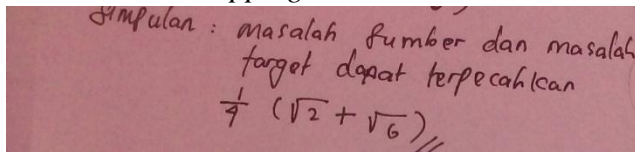 simpulan : masalah sumber dan masalah
target dapat terpecahkan
1/4 (√2 + √6)//